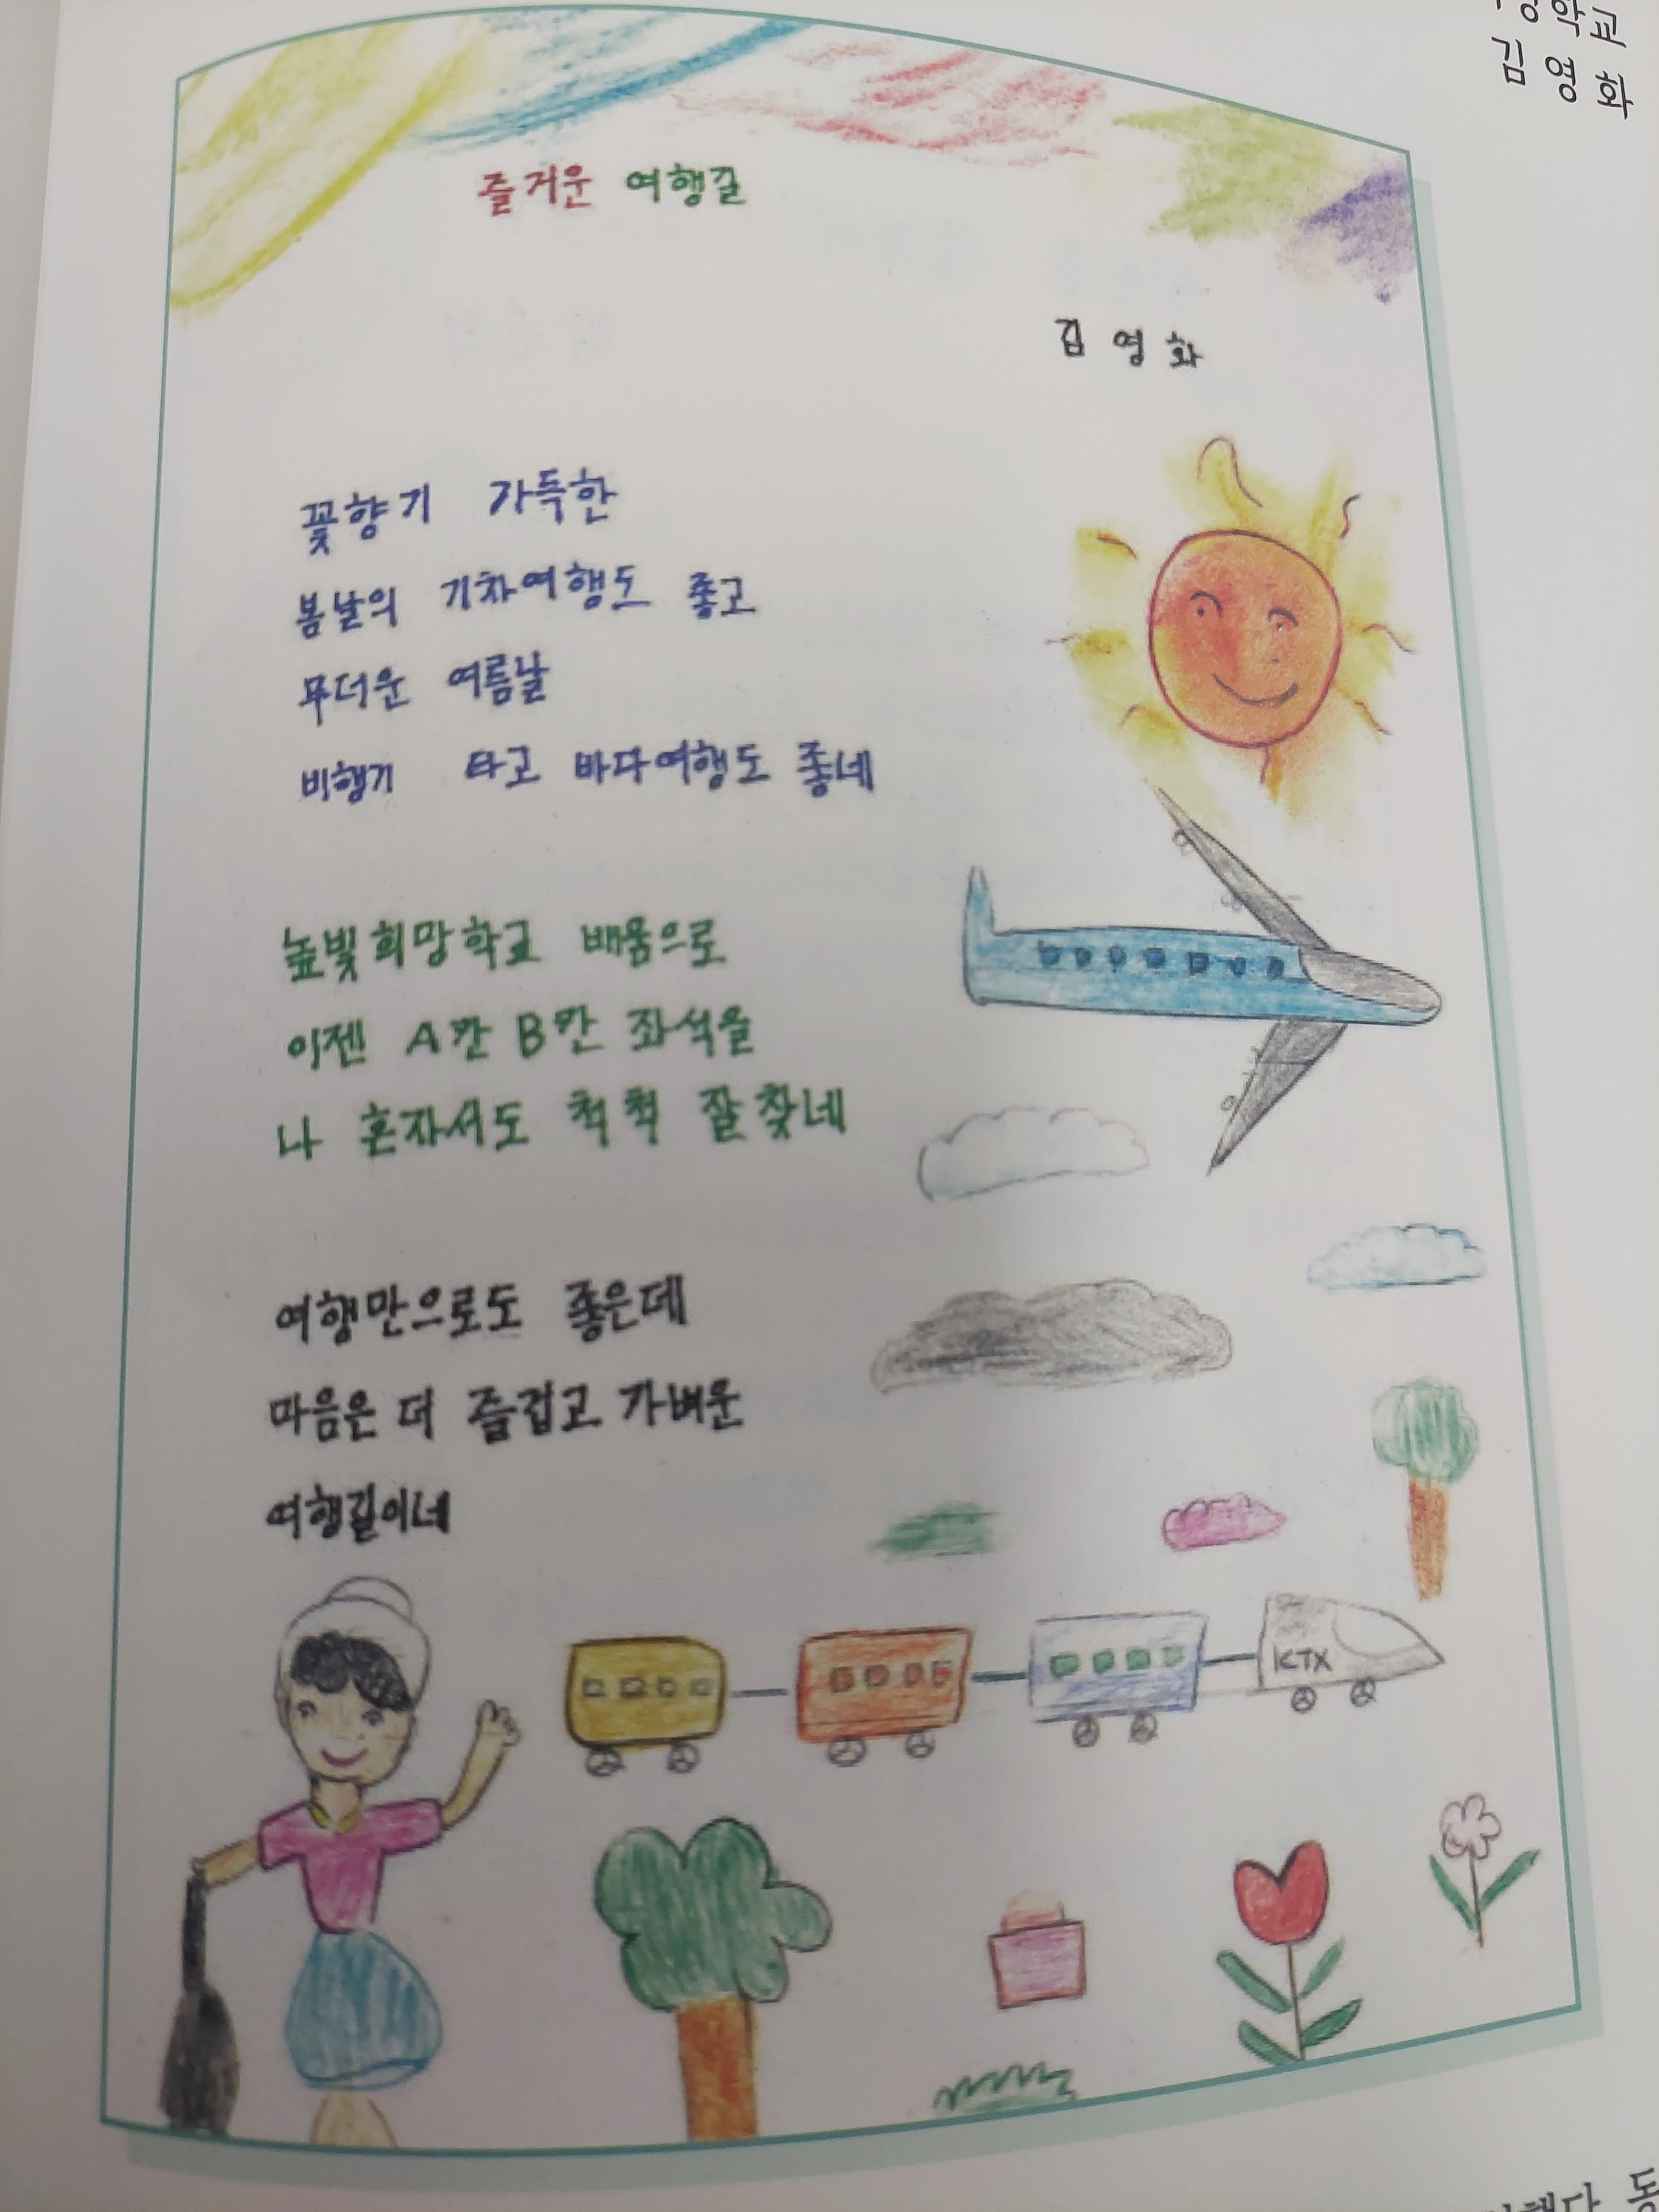 학교
김영화
즐거운 여행길
김영화
꽃향기 가득한
봄날의 기차여행도 좋고
무더운 여름날
비행기 타고 바다여행도 좋네
높빛희망학교 배움으로
이젠 A칸 B칸 좌석을
나 혼자서도 척척 잘찾네
여행만으로도 좋은데
마음은 더 즐겁고 가벼운
여행길이네
KTX
동